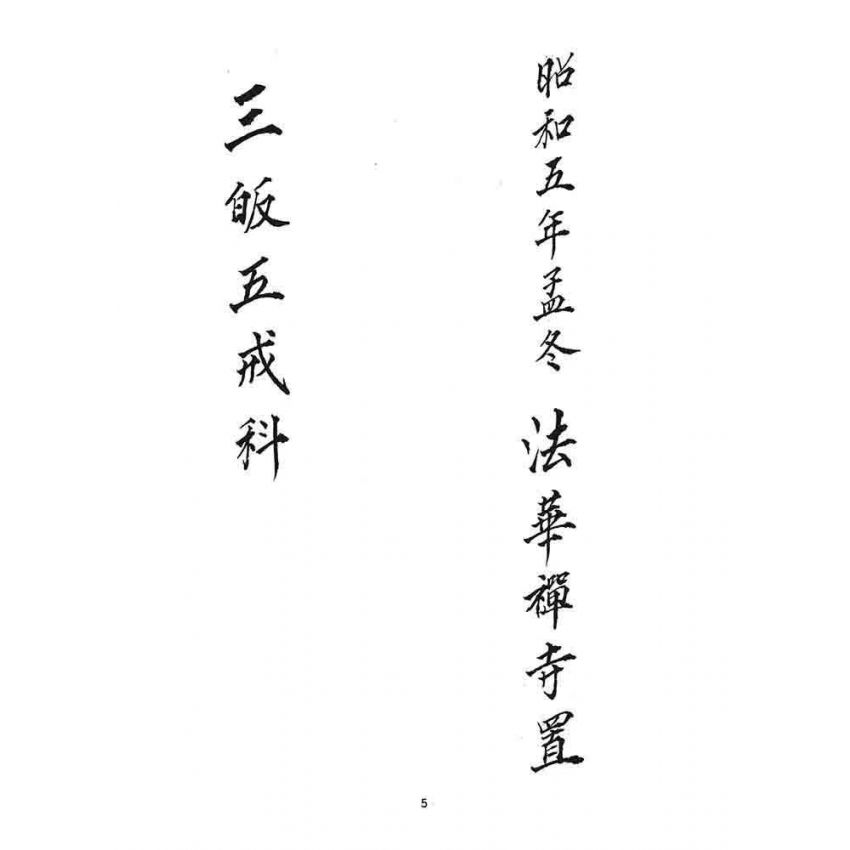 昭和五年孟冬 法華禪寺置
三皈五戒科
5